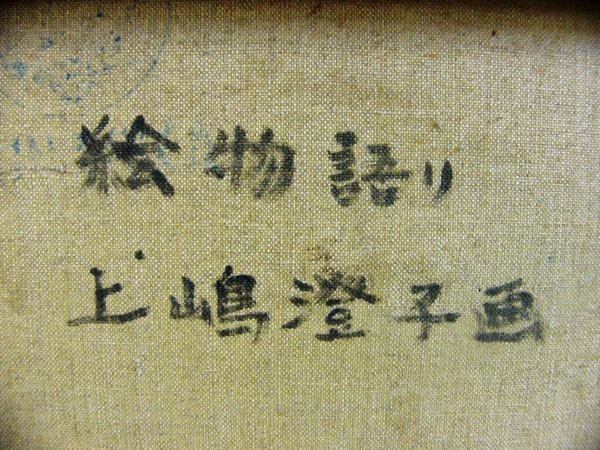 絵物語り
上嶋澄子画